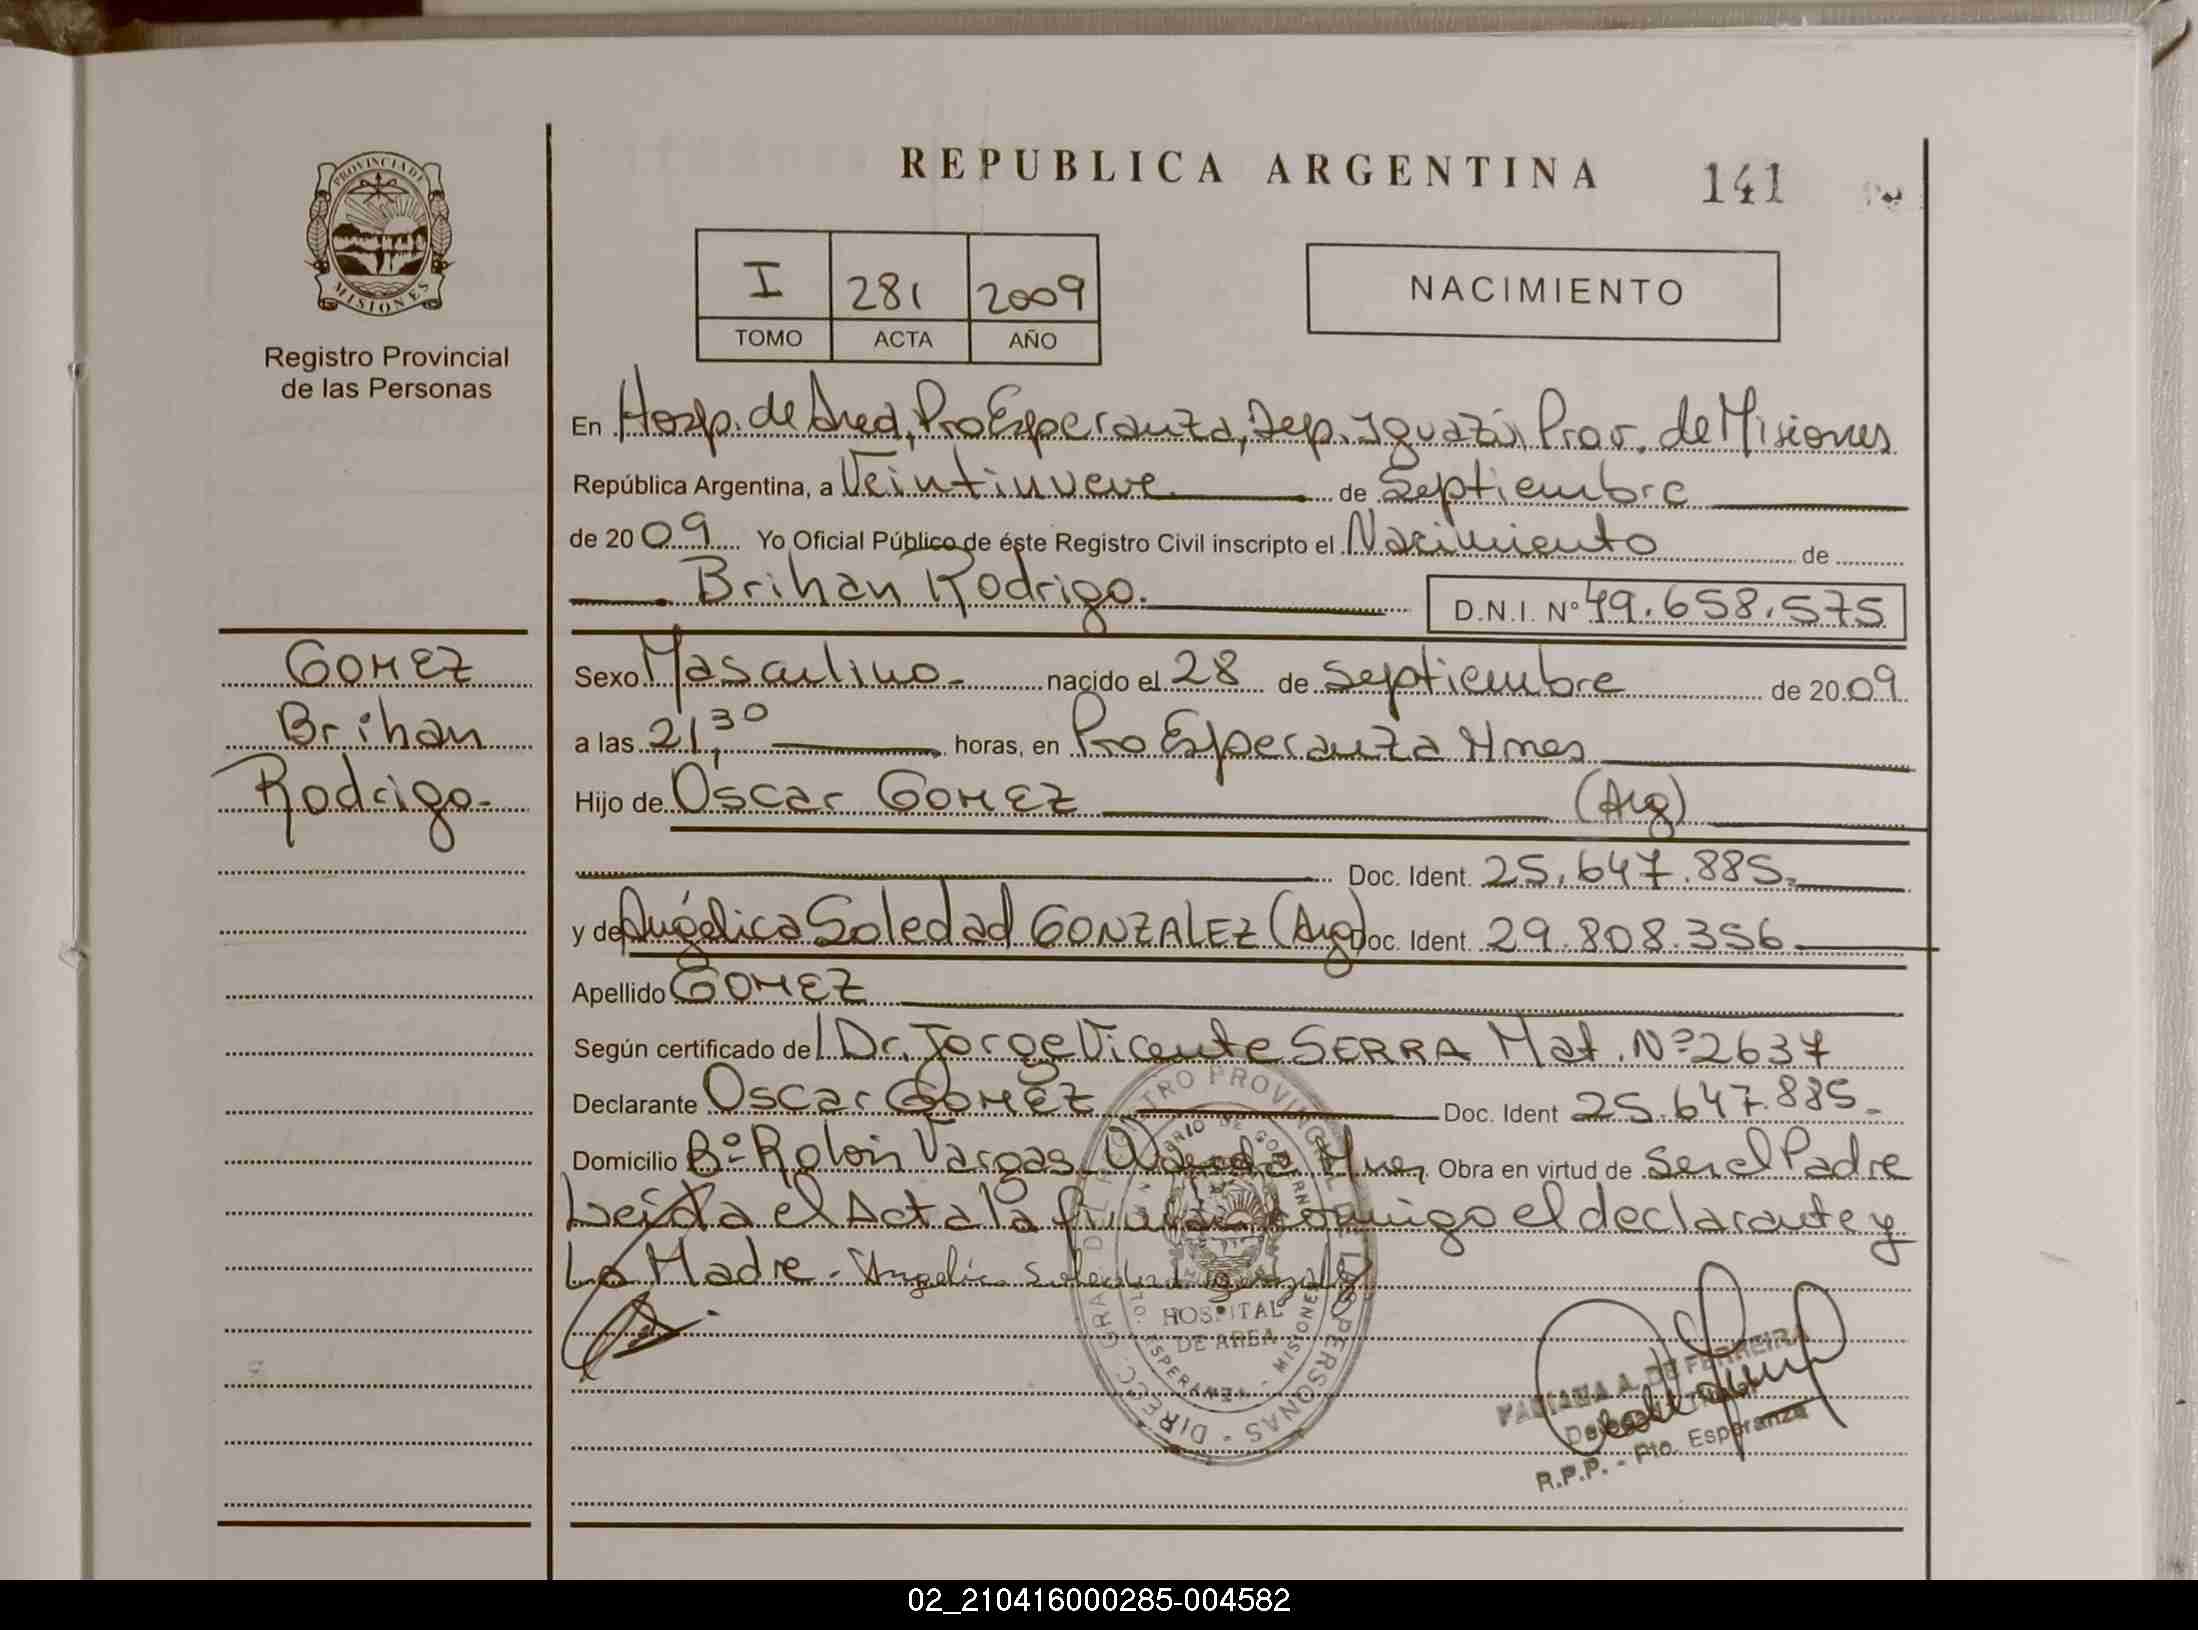 REPUBLICA ARGENTINA 141
PROVINCIA DE
MISIONES
Registro Provincial
de las Personas
I 281 2009
TOMO ACTA AÑO
NACIMIENTO
En Hosp. de Area, Pto Esperanza, Dep. Iguazú, Prov. de Misiones
República Argentina, a Veintinueve de Septiembre
de 2009 Yo Oficial Público de éste Registro Civil inscripto el Nacimiento de
Brihan Rodrigo. D.N.I. Nº 49.658.575
GOMEZ
Brihan
Rodrigo.-
Sexo Masculino.- nacido el 28 de Septiembre de 2009
a las 21,30 horas, en Pto Esperanza Mnes
Hijo de Oscar GOMEZ (Arg)
Doc. Ident. 25.647.885.-
y de Angélica Soledad GONZALEZ (Arg) Doc. Ident. 29.808.356.-
Apellido GOMEZ
Según certificado del Dr. Jorge Vicente SERRA Mat. Nº 2637
Declarante Oscar GOMEZ Doc. Ident 25.647.885.-
Domicilio Bº Rolón Vargas Mnes, Obra en virtud de Ser el Padre
Leída el Acta la firman conmigo el declarante y
La Madre.- Angelica Soledad Gonzalez
DIRECC. GRAL. DEL REGISTRO PROVINCIAL DE LAS PERSONAS
HOSPITAL
DE AREA
ESPERANZA - MISIONES
FABIANA A. DE FERREIRA
R.P.P. - Pto. Esperanza
02_210416000285-004582